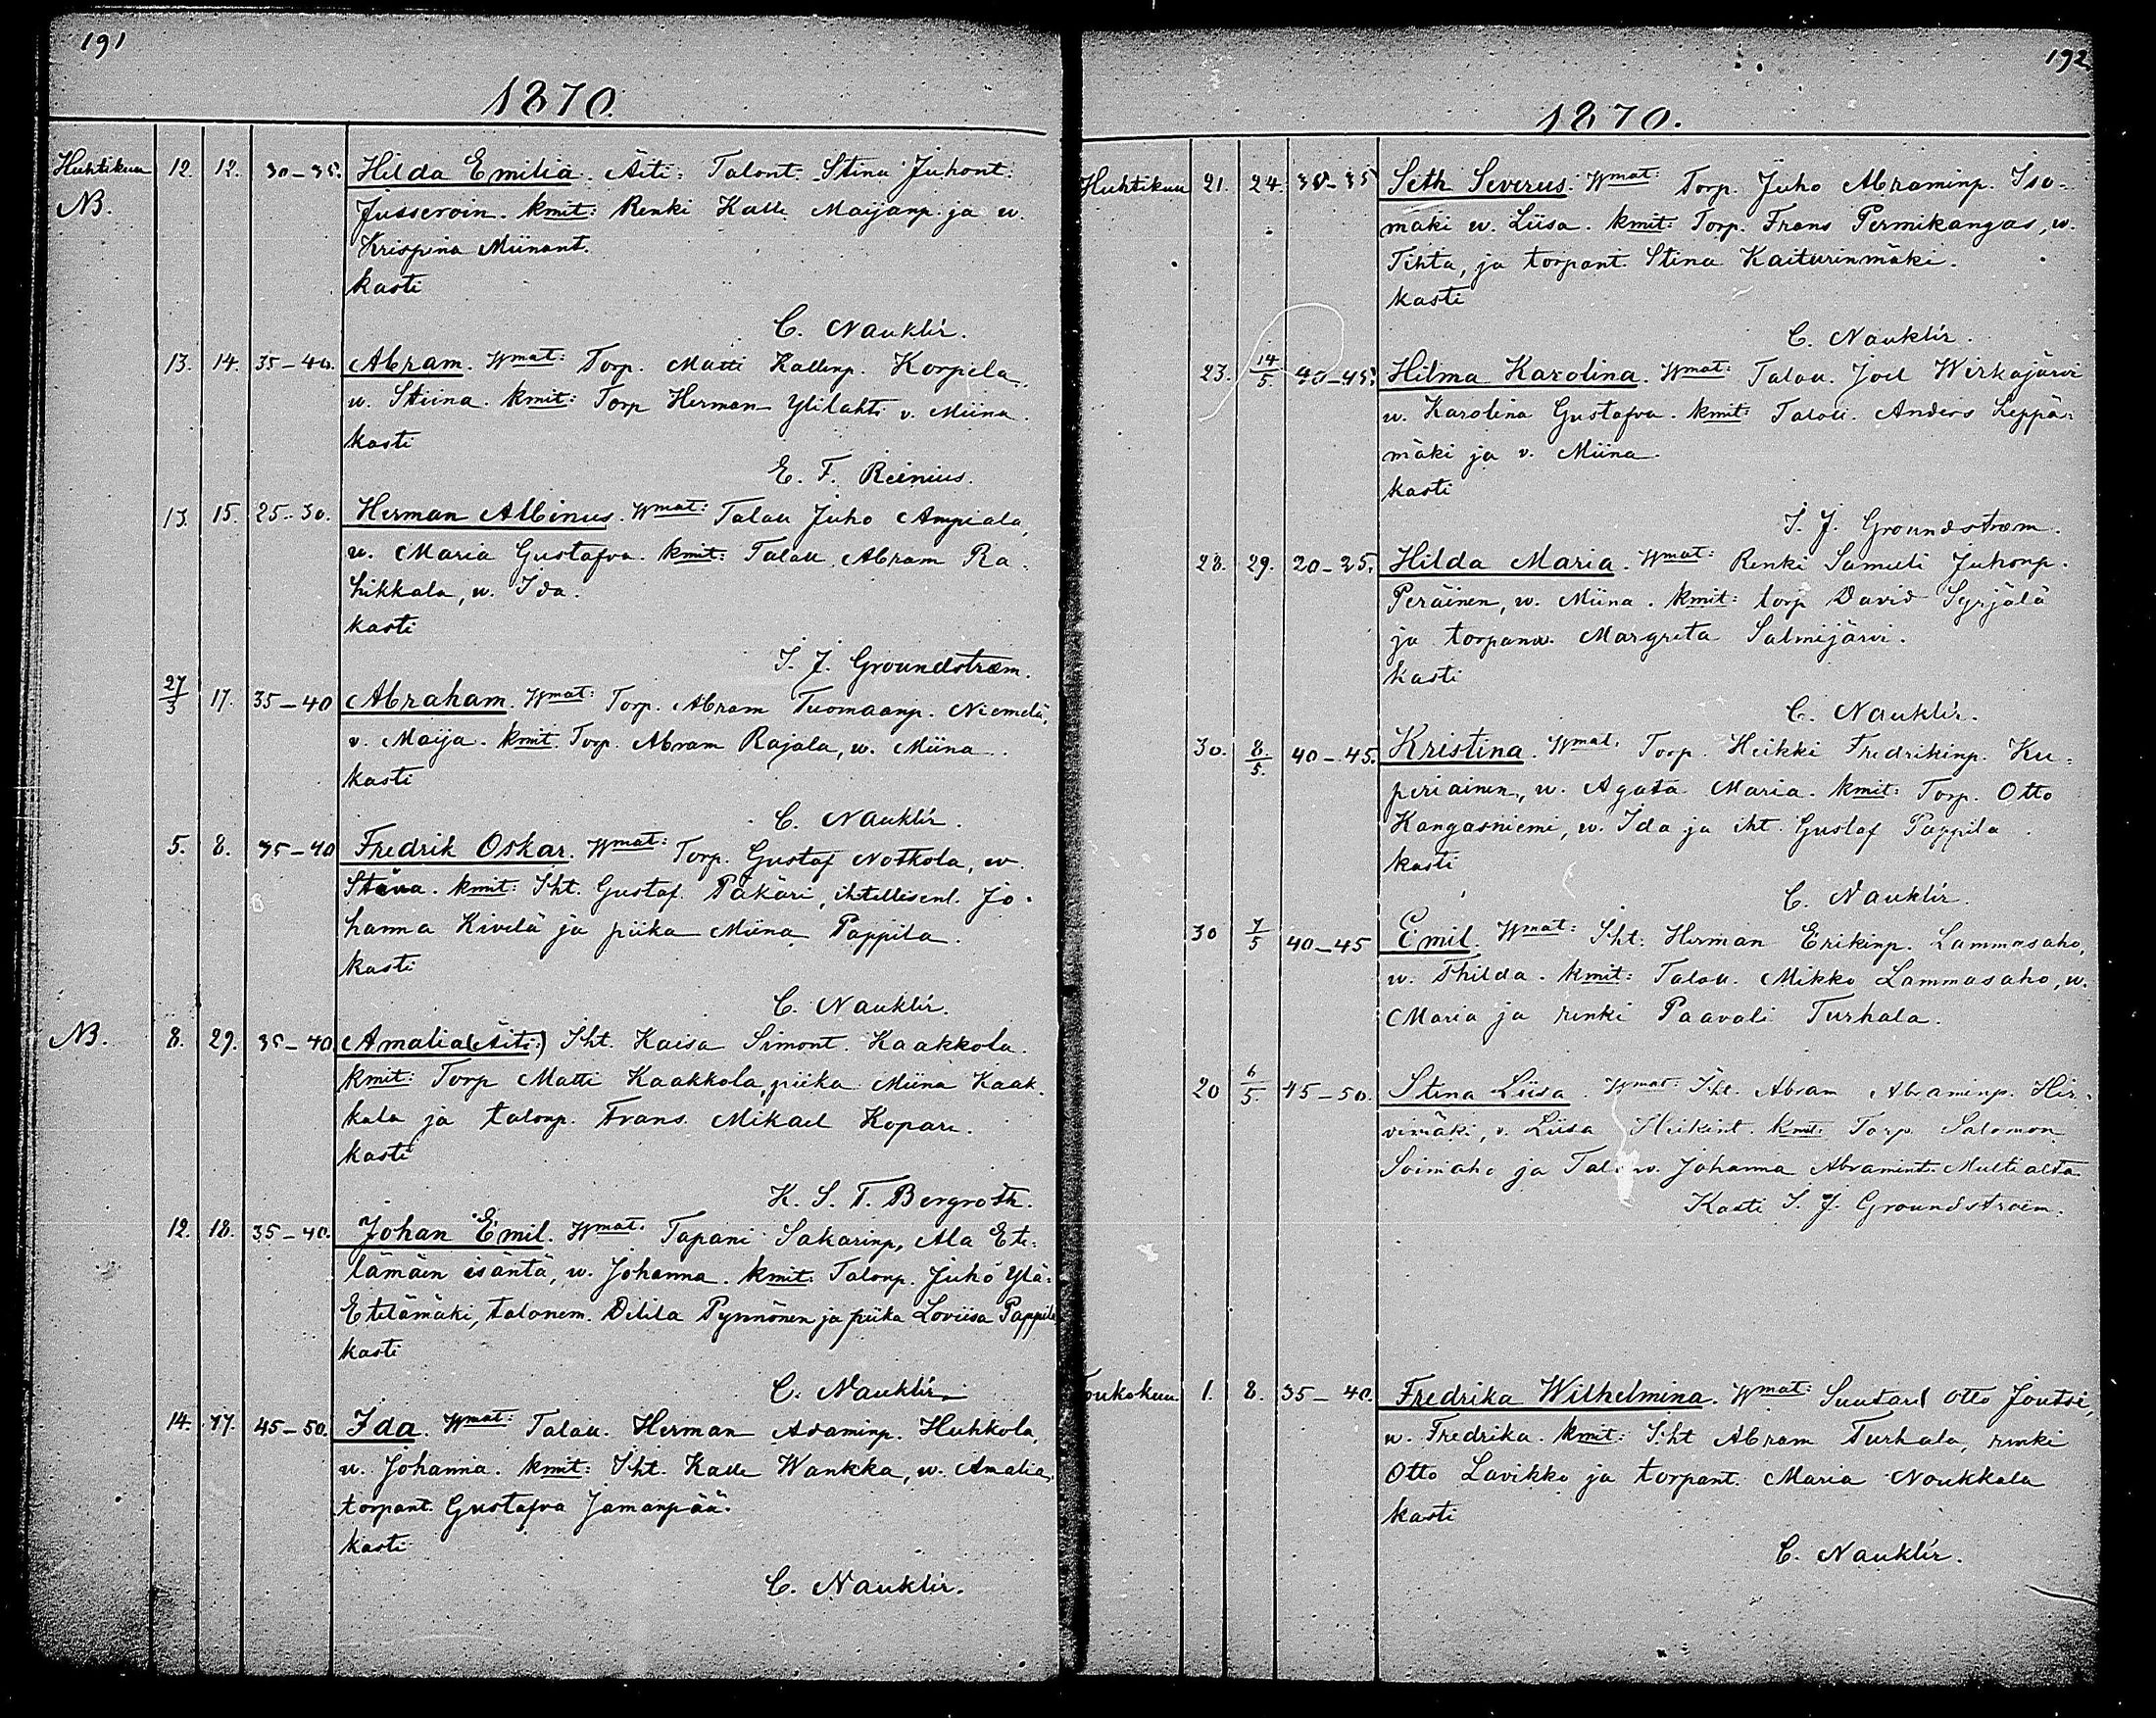 191
1870.
Huhtikuu 12. 12. 30-35. Hilda Emilia. Äiti: Talont. Stina Juhont.
NB. Jusseroin. kmit: Renki Kalle Maijanp. ja w.
Krispina Miinant.
kasti
C. Nauklér.
13. 14. 35-40. Abram. Wmat: Torp. Matti Kallenp. Korpela,
w. Stiina. kmit: Torp Herman Ylilahti v. Miina.
kasti
E. F. Reinius.
13. 15. 25-30. Herman Albinus. Wmat: Talall Juho Ampiala,
w. Maria Gustafva. kmit: Talall. Abram Ra-
hikkala, w. Ida.
kasti
I. J. Groundstræm.
27/3 17. 35-40 Abraham. Wmat: Torp. Abram Tuomaanp. Niemelä,
v. Maija. kmit. Torp. Abram Rajala, w. Miina.
kasti
C. Nauklér.
5. 8. 35-40 Fredrik Oskar. Wmat: Torp. Gustaf Notkola, w.
Stiina. kmit: Iht. Gustaf Pakari, ihtellisenl. Jo-
hanna Kivelä ja piika Miina Pappila.
kasti
C. Nauklér.
NB. 8. 29. 35-40 Amalia (Äiti:) Iht. Kaisa Simont. Kaakkola.
kmit: Torp Matti Kaakkola, piika Miina Kaak-
kola ja talonp. Frans Mikael Kopare.
kasti
K. S. T. Bergroth.
12. 18. 35-40. Johan Emil. Wmat. Tapani Sakarinp, Ala Ete-
lämäen isäntä, w. Johanna. kmit: Talonp. Juho Ylä-
Etelämäki, talonem. Delila Pynnönen ja piika Loviisa Pappila
kasti
C. Nauklér.
14. 17. 45-50. Ida. Wmat: Talall. Herman Adaminp. Huhkola,
w. Johanna. kmit: Iht. Kalle Wankka, w. Amalia,
torpant. Gustafva Jamanpää.
kasti
C. Nauklér.
192.
1870.
Huhtikuu 21. 24. 30-35 Seth Severus. Wmat: Torp. Juho Abraminp. Iso-
mäki w. Liisa. kmit: Torp. Frans Permikangas, w.
Tihta, ja torpant. Stina Kaiturinmäki.
kasti
C. Nauklér.
23. 14/5 40-45. Hilma Karolina. Wmat: Talall. Joel Wirkajärvi
w. Karolina Gustafva. kmit: Talall. Anders Leppä-
mäki ja v. Miina.
kasti
I. J. Groundstræm.
28. 29. 20-25. Hilda Maria. Wmat: Renki Samuli Juhonp.
Peräinen, w. Miina. kmit: torp David Syrjälä
ja torpanw. Margreta Salmijärvi.
kasti
C. Nauklér.
30. 8/5. 40-45. Kristina. Wmat. Torp. Heikki Fredrikinp. Ku-
periainen, w. Agata Maria. kmit: Torp. Otto
Kangasniemi, w. Ida ja iht. Gustaf Pappila.
kasti
C. Nauklér.
30 7/5 40-45 Emil. Wmat: Iht. Herman Erikinp. Lammasaho,
w. Thilda. kmit: Talall. Mikko Lammasaho, w.
Maria ja renki Paavali Turhala.
20 6/5 45-50. Stina Liisa. Wmat: Iht. Abram Abraminp. Hir-
vimäki, v. Liisa Heikint. kmit: Torp. Salomon
Soimaho ja Johanna Abramint. Multialta.
Kasti I. J. Groundstroëm.
Toukokuu 1. 8. 35-40. Fredrika Wilhelmina. Wmat: Suutari Otto Joutsi,
w. Fredrika. kmit: Iht Abram Turhala, renki
Otto Lavikko ja torpant. Maria Noukkala
kasti
C. Nauklér.